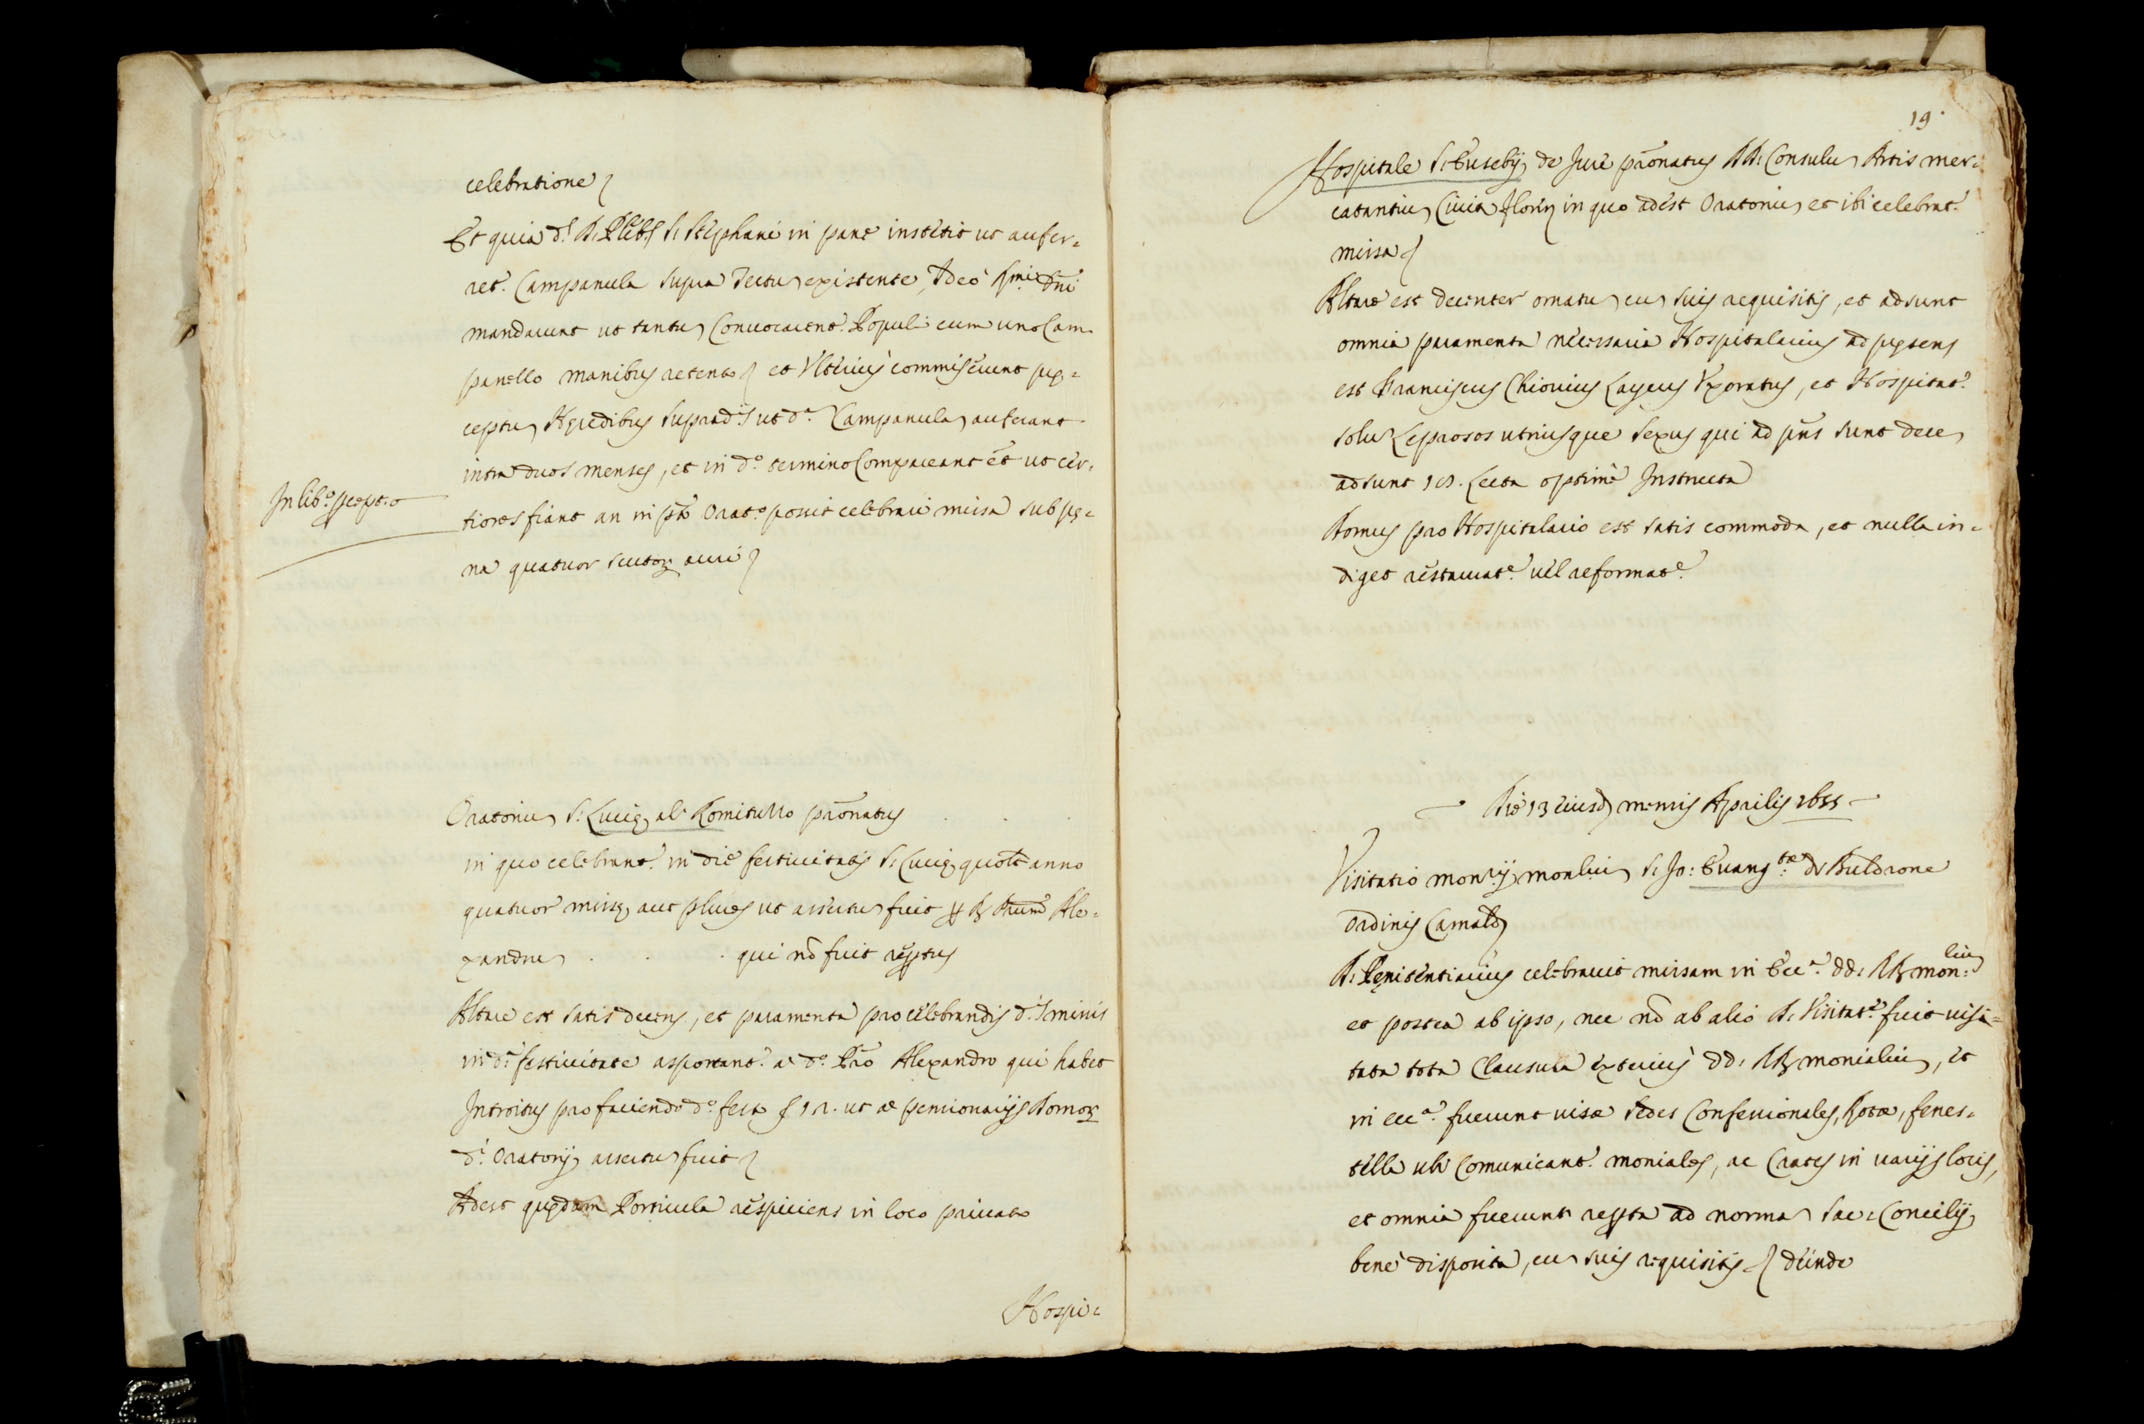 celebratione
Et quia d.s R. Pleb.s S. Stephani in pane institit ut aufer=
ret.r Campanula supra Tectu existente, Adeò Rmi Dni
mandarunt ut tantu Convocarent.r Populi cum uno Cam
panello manibus retento et Ulterius commiserunt pre=
ceptu Heredibus Suprad.is ut d.a Campanula auferant
intra duos menses, et in d.o termino Compareant et ut cer=
tiores fiant an in pto Orat.o possit celebrari missa sub pe=
na quatuor scutor auri
In lib.o precept.o
Oratoriu S. Lucie al Romituzzo pronatus . . .
in quo celebrant.r in die festivitatis S. Lucie quolt anno
quatuor misse aut plures ut assertu fuit per R. Prum Ale=
xandru . . . qui no fuit repertus
Altare est satis decens, et paramenta pro celebrandis d.is missis
in d.a festivitate asportant.r a d.o Pro Alexandro qui habet
Introitus pro faciendo d.o festo § 12. ut a pensionarijs Domor
d.i Oratorij assertu fuit
Adest quedam Porticula respiciens in loco privato
Hospi=
19.
Hospitale S. Eusebij de Jure pronatus RR. Consulu Artis mer=
catantiu Civit Floren in quo adest Oratoriu et ibi celebrat.r
missa
Altare est decenter ornatu cu suis requisitis, et adsunt
omnia paramenta necessaria Hospitalarius ad presens
est Franciscus Chiorius Laycus Uxoratus, et Hospitat.r
solu Leprosos utriusque sexus qui ad pns sunt dece
adsunt 10. Lecta optime Instructa
Domus pro Hospitalario est satis commoda, et nulla in=
diget restaurat.e vel reformat.e
Die 13 eiusd mensis Aprilis 1655
Visitatio monrij monliu S. Jo: Evang.tae de Buldrone
Ordinis Camald
R. Penitentiarius celebravit missam in Ecc.a dd. RR mon:liu
et postea ab ipso, nec no ab alio R. Visitat.e fuit visi=
tata tota Clausura exterius dd. RR monialiu, et
in ecc.a fuerunt visae sedes Confessionales, Rotae, fenes=
tella ubi Comunicant.r moniales, ac Crates in varijs locis,
et omnia fuerunt reperta ad norma Sac. Concilij
bene disposita, cu suis requisitis deinde